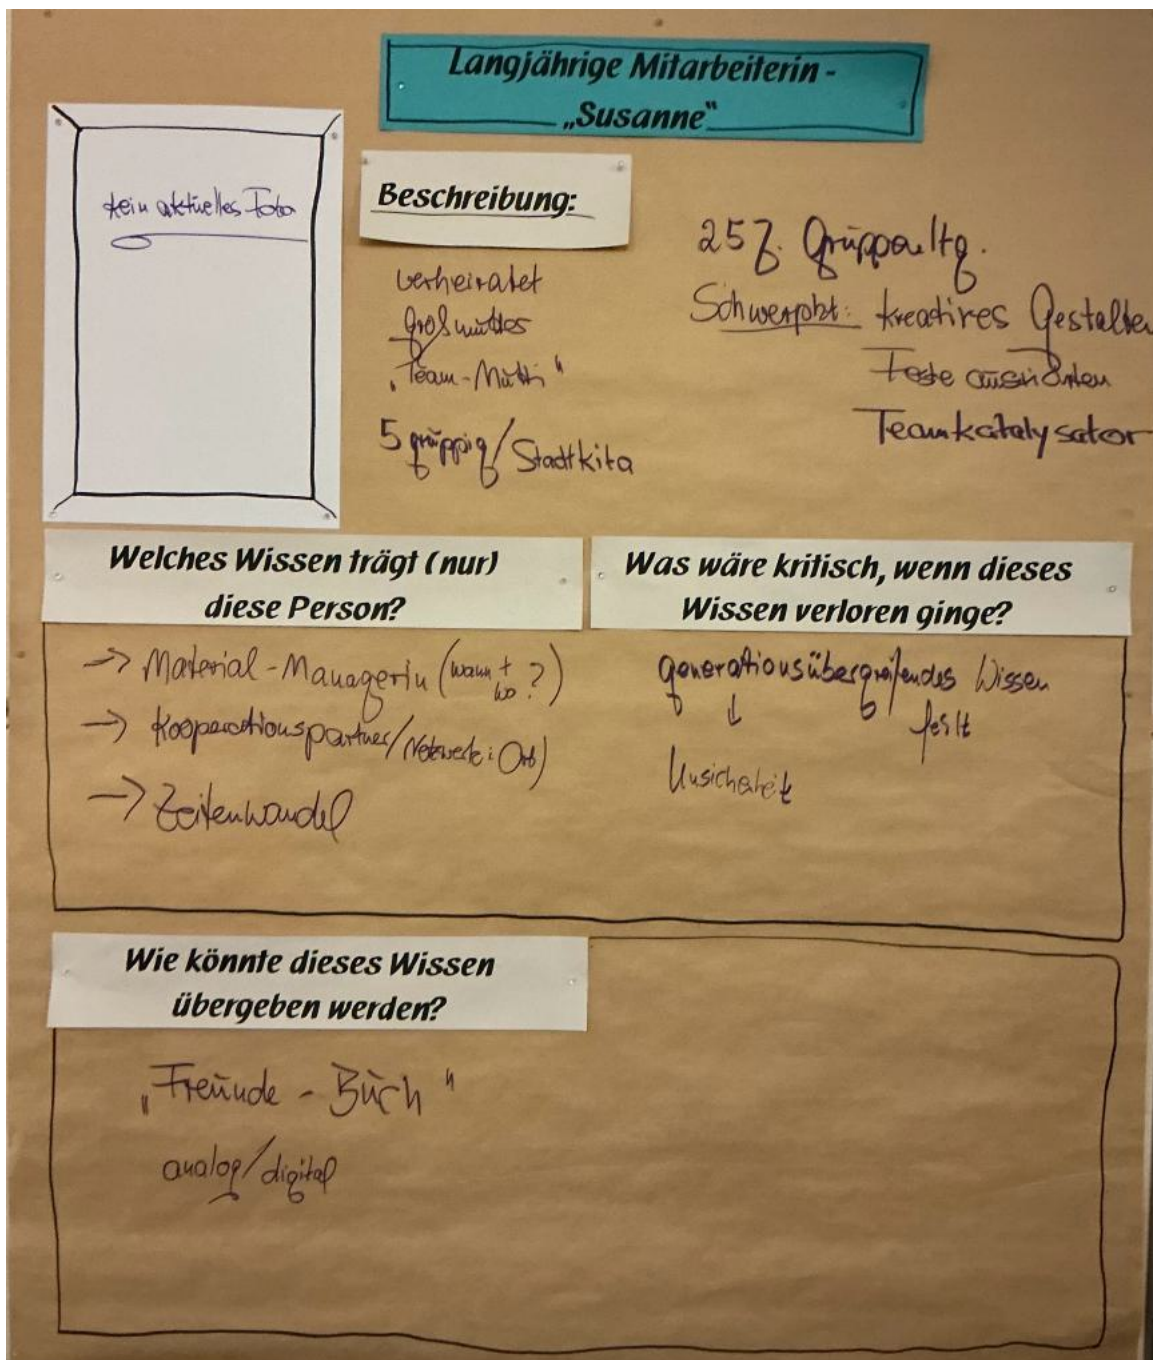 Langjährige Mitarbeiterin -
„Susanne“
kein aktuelles Foto
Beschreibung:
verheiratet
Großmutter
„Team-Mutti“
5 gruppig/Stadtkita
25 J. Gruppenltg.
Schwerpkt: kreatives Gestalten
Feste ausrichten
Teamkatalysator
Welches Wissen trägt (nur)
diese Person?
-> Material-Managerin (wann + wo?)
-> Kooperationspartner/Netzwerk: Ort)
-> Zeitenwandel
Was wäre kritisch, wenn dieses
Wissen verloren ginge?
generationsübergreifendes Wissen
↓ fehlt
Unsicherheit
Wie könnte dieses Wissen
übergeben werden?
„Freunde - Buch“
analog/digital